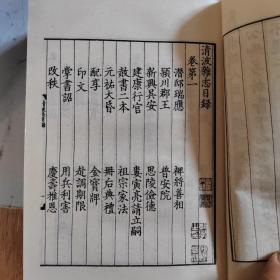 清波雜志目錄
卷第一
潛邸瑞應 神將善相
潁川郡王 普安院
新興吳安 思陵儉德
建康行宮 婁寅亮請立嗣
敕書二本 祖宗家法
元祐大昏 冊后典禮
配享 金寶牌
印文 赴調期限
常書詔 用兵利害
改秩 慶壽推恩